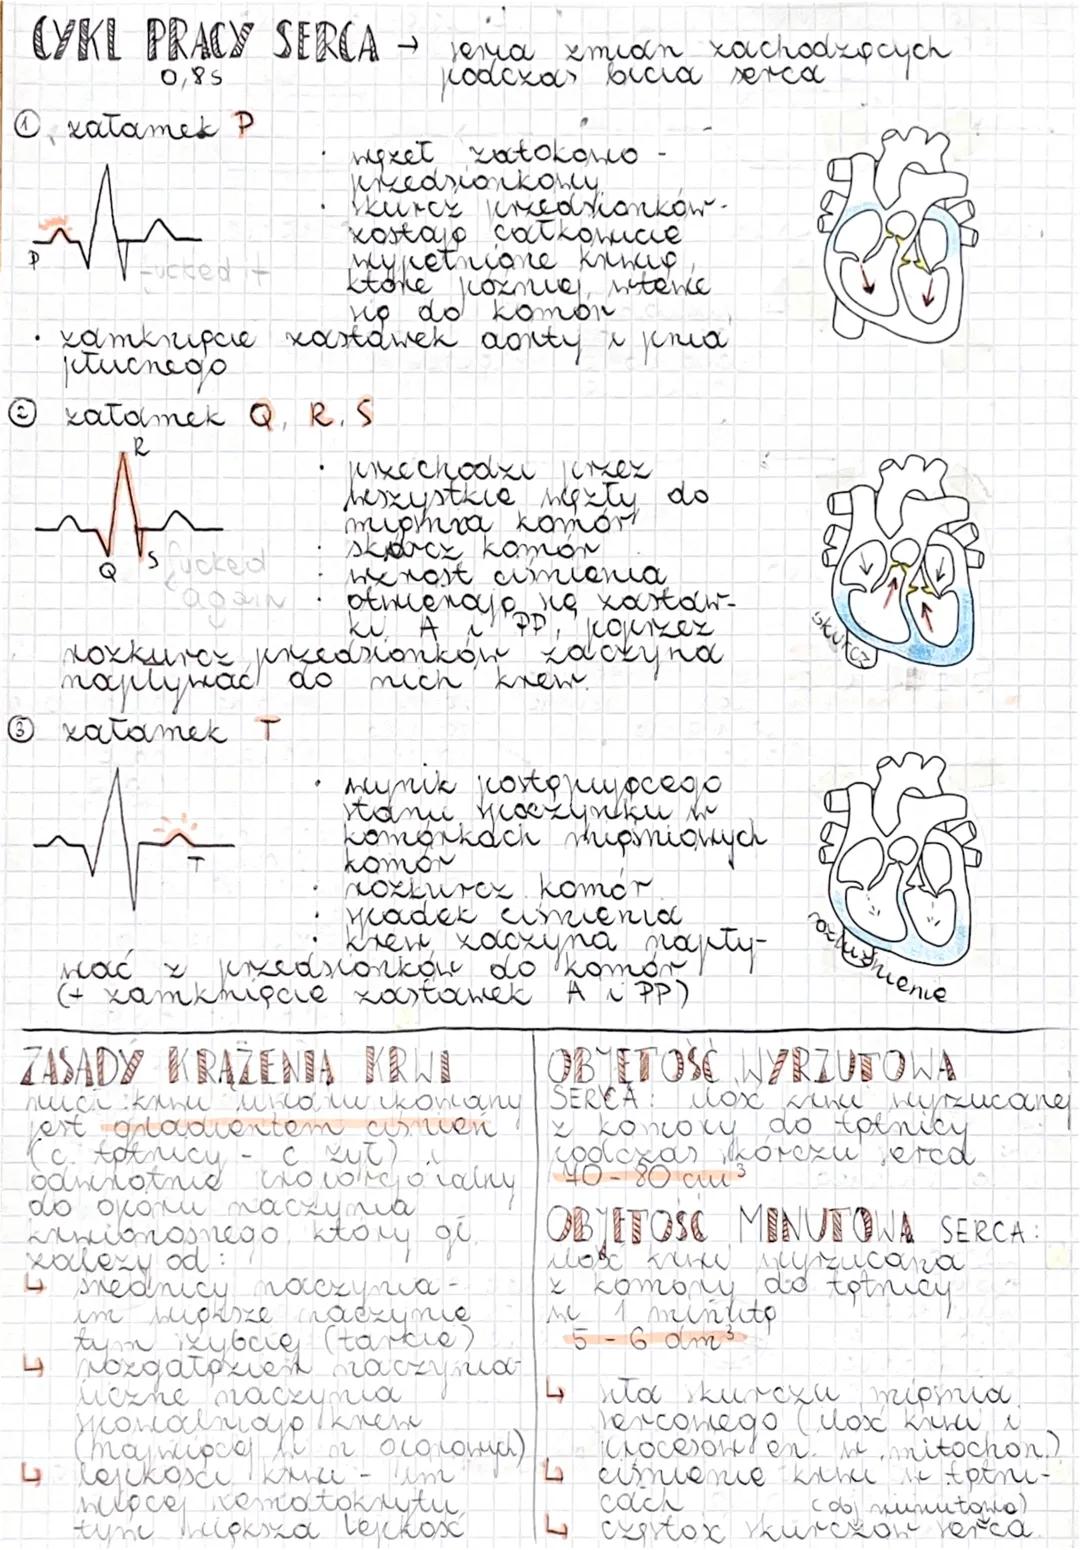 CYKL PRACY SERCA → seria zmian zachodzących
0,8s podczas bicia serca
① załamek P
P
fucked it
· węzeł zatokowo-
przedsionkowy
· skurcz przedsionków-
zostają całkowicie
wypełnione krwią,
które później wtłacza
się do komór
· zamknięcie zastawek aorty i pnia
płucnego
② załamek Q, R, S
R
Q
S
fucked
again
· przechodzi przez
wszystkie węzły do
mięśnia komór
· skurcz komór
· wzrost ciśnienia
· otwierają się zastaw-
ki A i PP, poprzez
rozkurcz przedsionków zaczyna
napływać do nich krew.
skurcz
③ załamek T
T
· wynik postępującego
stanu spoczynku w
komórkach mięśniowych
komór
· rozkurcz komór
· spadek ciśnienia
· krew zaczyna napły-
wać z przedsionków do komór
(+ zamknięcie zastawek A i PP)
rozluźnienie
ZASADY KRĄŻENIA KRWI
ruch krwi uwarunkowany
jest gradientem ciśnień
(c. tętnicy - c żył) i
odwrotnie proporcjonalny
do oporu naczynia
krwionośnego, który gł.
zależy od:
↳ średnicy naczynia-
im większe naczynie
tym szybciej (tarcie)
↳ rozgałęzień naczynia-
liczne naczynia
spowalniają krew
(najwięcej w n. oporowych)
↳ lepkości krwi - im
więcej hematokrytu
tym większa lepkość
OBJĘTOŚĆ WYRZUTOWA
SERCA: ilość krwi wyrzucanej
z komory do tętnicy
podczas skórczu serca
70-80 cm³
OBJĘTOŚĆ MINUTOWA SERCA:
ilość krwi wyrzucana
z komory do tętnicy
w 1 minutę
5-6 dm³
↳ siła skurczu mięśnia
sercowego (ilość krwi i
procesów en. w mitochon.)
↳ ciśnienie krwi w tętni-
cach (obj minutowa)
↳ częstość skurczów serca